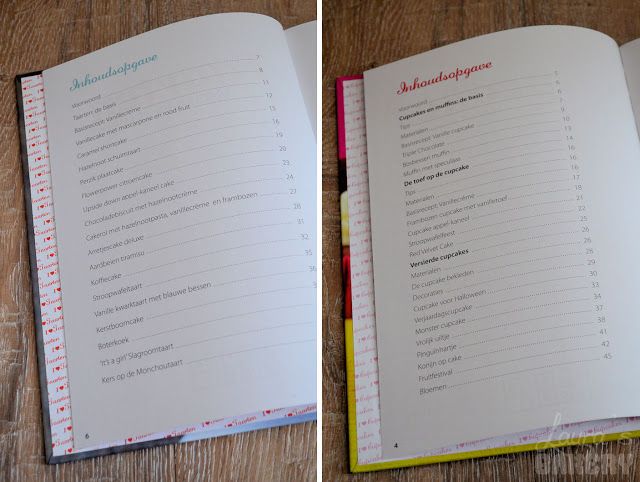 Inhoudsopgave
Voorwoord 7
Taarten: de basis 8
Basisrecept Vanillecrème 11
Vanillecake met mascarpone en rood fruit 12
Caramelshortcake 15
Hazelnoot schuimtaart 16
Perzik plaatcake 19
Flowerpower citroencake 20
Upside down appel-kaneel cake 23
Chocoladebiscuit met hazelnootcrème 24
Cakerol met hazelnootpasta, vanillecrème en frambozen 27
Arretjescake deluxe 28
Aardbeien tiramisu 31
Koffiecake 32
Stroopwafeltaart 35
Vanille kwarktaart met blauwe bessen
Kerstboomcake
Boterkoek
'It's a girl' Slagroomtaart
Kers op de Monchoutaart
6
Inhoudsopgave
Voorwoord 5
Cupcakes en muffins: de basis 6
Tips 6
Materialen 7
Basisrecept Vanille cupcake
Triple Chocolate 10
Bosbessen muffin 13
Muffin met speculaas 14
De toef op de cupcake 16
Tips 16
Materialen 16
Basisrecept Vanillecrème
Frambozen cupcake met vanilletoef 18
Cupcake appel-kaneel 21
Stroopwafelfeest 22
Red Velvet Cake 25
Versierde cupcakes 26
Materialen 26
De cupcake bekleden 28
Decoraties 29
Cupcake voor Halloween 30
Verjaardagscupcake 33
Monster cupcake 34
Vrolijk uitje 37
Pinguinhartje 38
Konijn op cake 41
Fruitfestival 42
Bloemen 45
4
Laura's
BAKERY